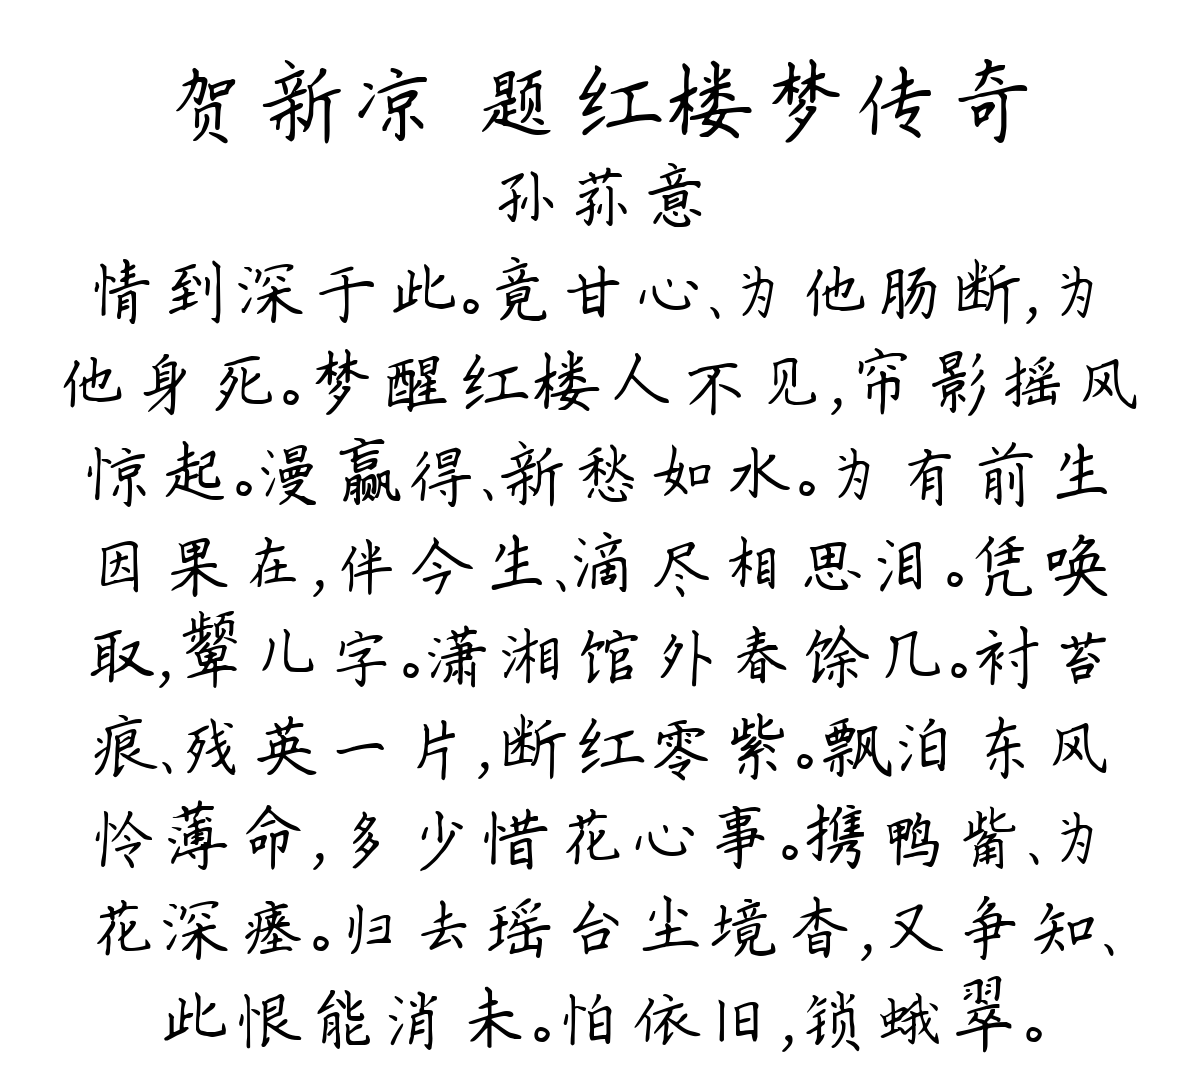 贺新凉 题红楼梦传奇
孙荪意
情到深于此。竟甘心、为他肠断,为
他身死。梦醒红楼人不见,帘影摇风
惊起。漫赢得、新愁如水。为有前生
因果在,伴今生、滴尽相思泪。凭唤
取,颦儿字。潇湘馆外春馀几。衬苔
痕、残英一片,断红零紫。飘泊东风
怜薄命,多少惜花心事。携鸭觜、为
花深瘗。归去瑶台尘境杳,又争知、
此恨能消未。怕依旧,锁蛾翠。